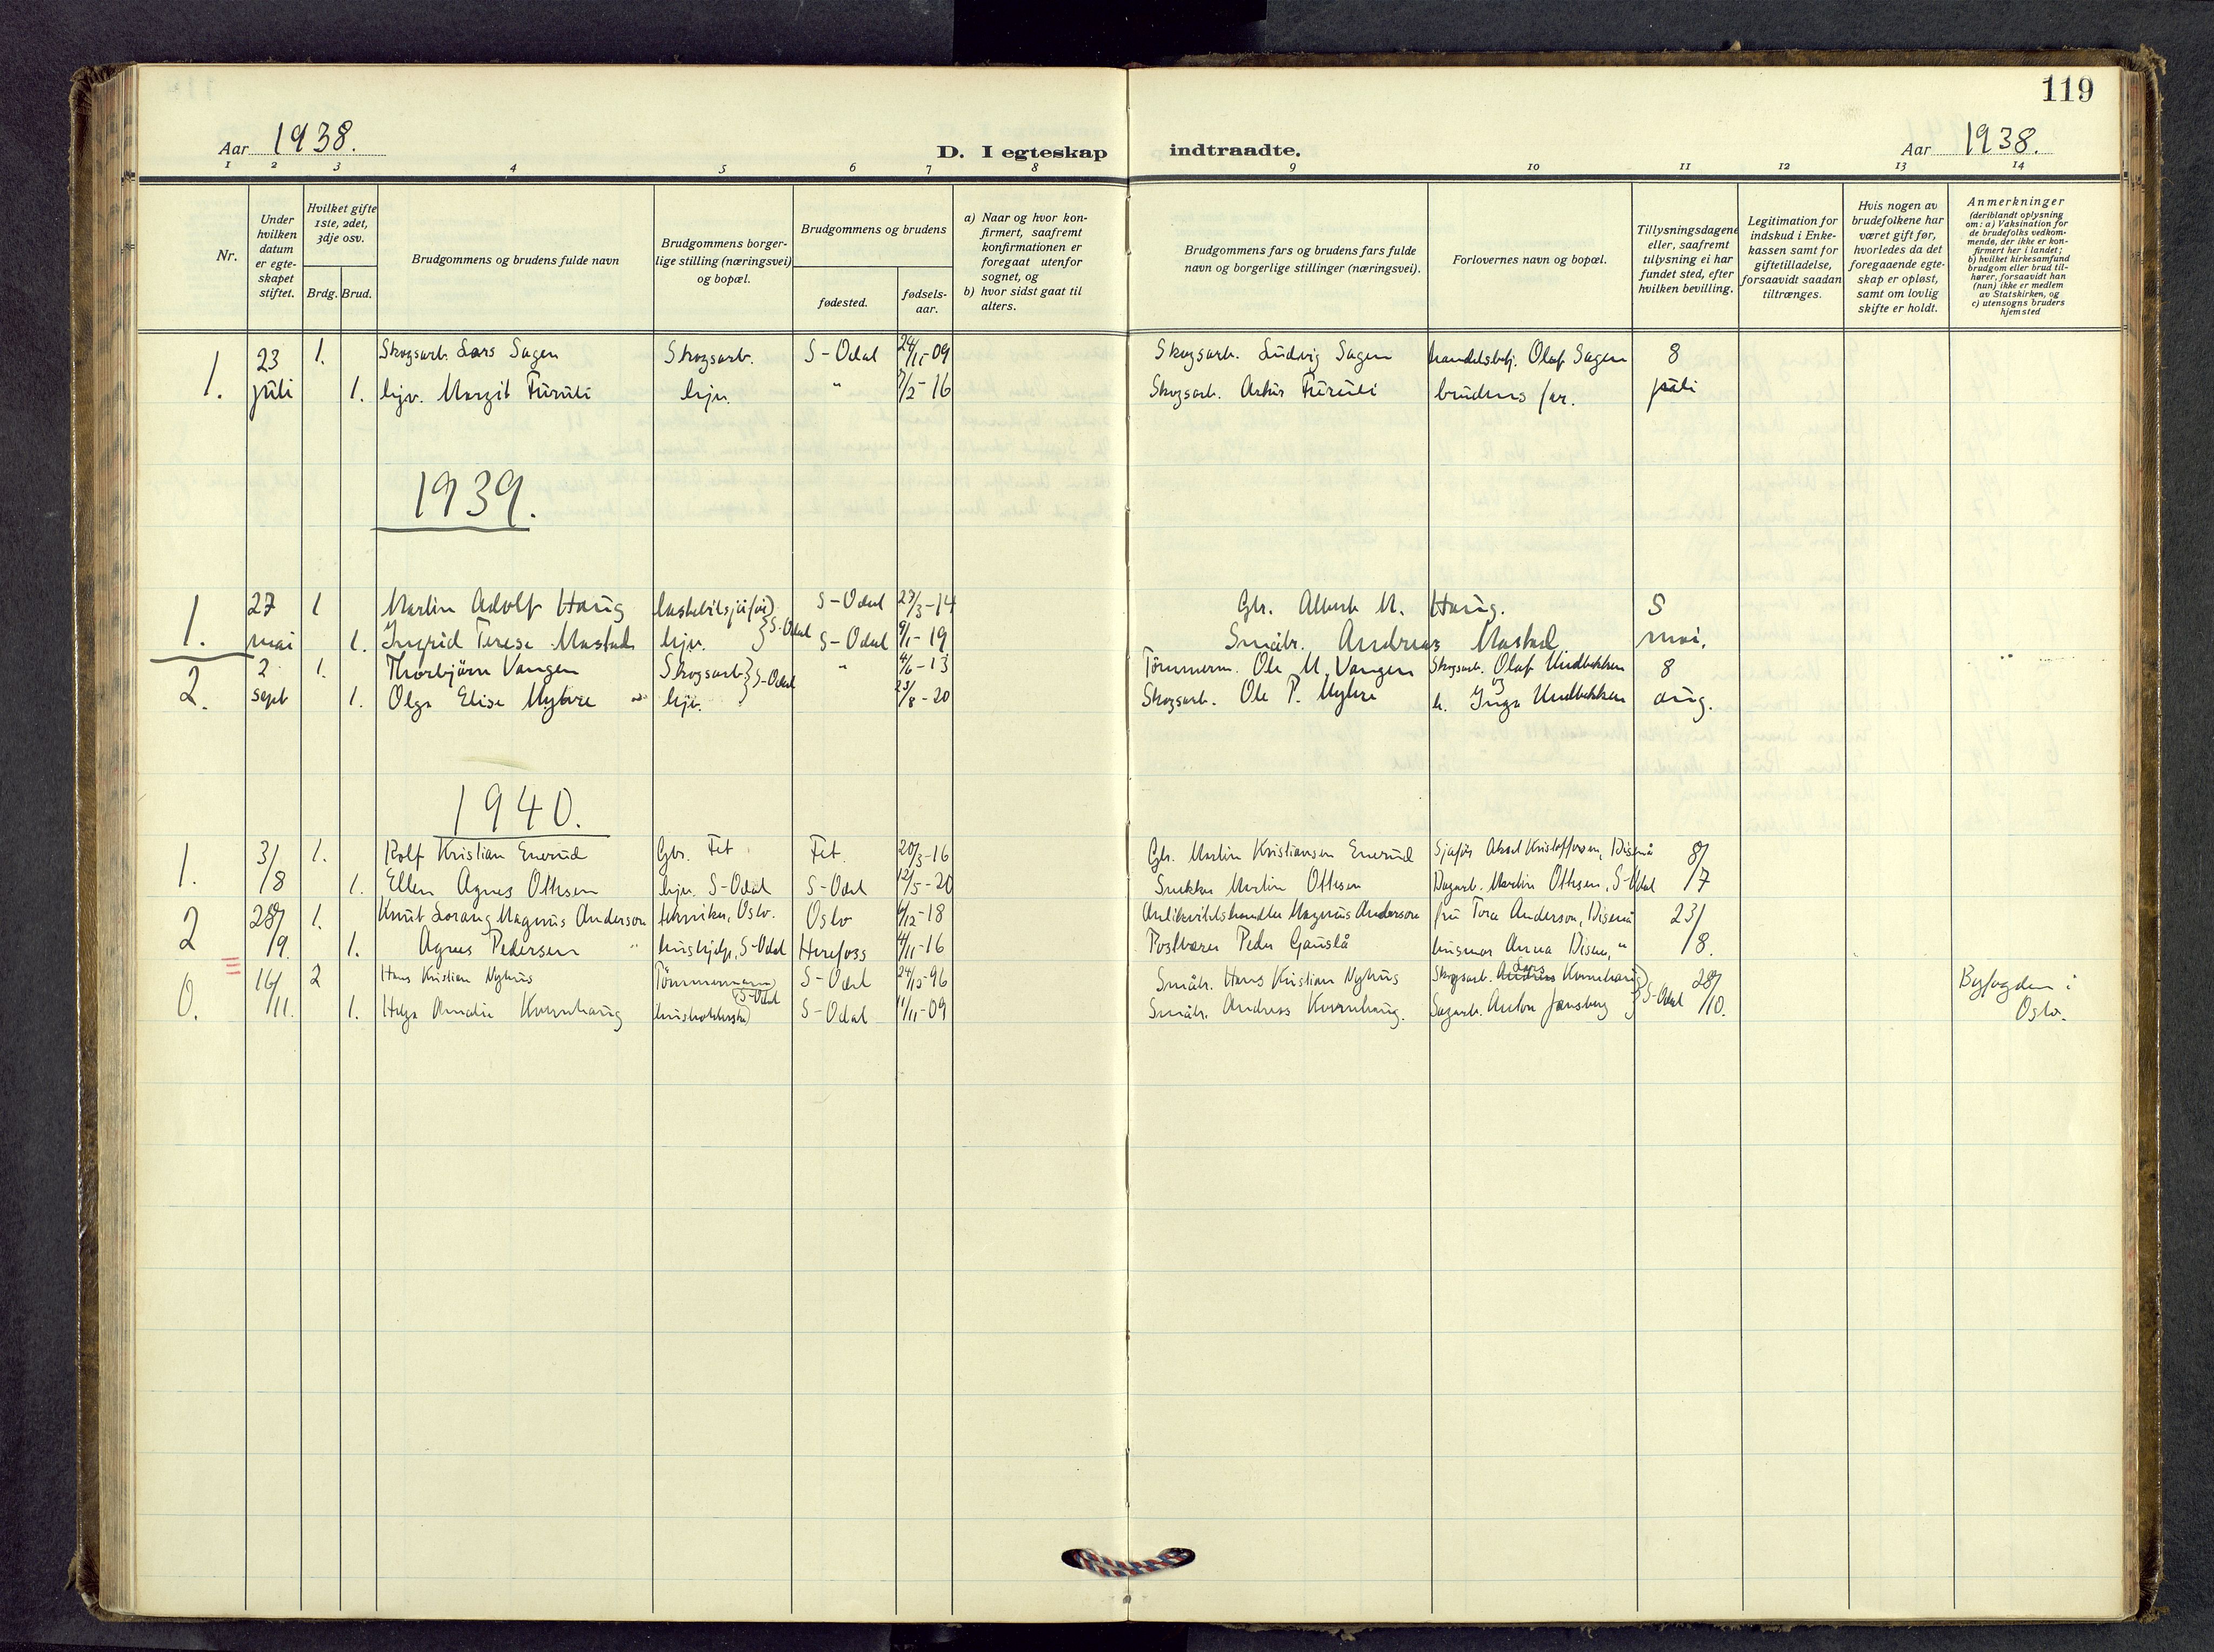 119
Aar 1938.
D. I egteskap indtraadte.
Aar 1938.
1 2 3 4 5 6 7 8 9 10 11 12 13 14
Nr.
Under hvilken datum er egteskapet stiftet.
Hvilket gifte 1ste, 2det, 3dje osv.
Brdg. Brud.
Brudgommens og brudens fulde navn
Brudgommens borgerlige stilling (næringsvei) og bopæl.
Brudgommens og brudens
fødested.
fødselsaar.
a) Naar og hvor konfirmert, saafremt konfirmationen er foregaat utenfor sognet, og
b) hvor sidst gaat til alters.
Brudgommens fars og brudens fars fulde navn og borgerlige stillinger (næringsvei).
Forlovernes navn og bopæl.
Tillysningsdagene eller, saafremt tillysning ei har fundet sted, efter hvilken bevilling.
Legitimation for indskud i Enkekassen samt for giftetilladelse, forsaavidt saadan tiltrænges.
Hvis nogen av brudefolkene har været gift før, hvorledes da det foregaaende egteskap er opløst, samt om lovlig skifte er holdt.
Anmerkninger
(deriblandt oplysning om: a) Vaksination for de brudefolks vedkommende, der ikke er konfirmert her i landet; b) hvilket kirkesamfund brudgom eller brud tilhører, forsaavidt han (hun) ikke er medlem av Statskirken, og c) utensogns bruders hjemsted
1. 23 1. Skogsarb. Lars Sagen Skogsarb. S-Odal 24/11-09 Skogsarb. Ludvig Sagen handelsbetj. Olaf Sagen 8
juli 1. hjv. Margit Furuli hjv. " 7/2-16 Skogsarb. Artur Furuli brudens far. juli
1939.
1. 27 1 Martin Adolf Haug lastebilsjåfør S-Odal 27/3-14 Gbr. Albert M. Haug. 5
mai 1. Ingrid Terese Mastad hjv. S-Odal S-Odal 9/1-19 Småbr. Andreas Mastad mai.
2. 2 1. Thorbjörn Vangen Skogsarb. S-Odal " 4/6-13 Tömmerm. Ole M. Vangen Skogsarb. Olaf Hudbekken 8
sept 1. Olga Elise Myhre hjv. 23/8-20 Skogsarb. Ole P. Myhre h. Inga Hudbekken aug.
1940.
1. 3/ 1. Rolf Kristian Enerud Gbr. Fet Fet. 20/3-16 Gbr. Martin Kristiansen Enerud Sjåför Aksel Kristoffersen, Disenå 8/
/8 1. Ellen Agnes Ottesen hjv. S-Odal S-Odal 12/5-20 Snekker Martin Ottesen Dagarb. Martin Ottesen, S-Odal /7
2 28/ 1. Knut Lorang Magnus Anderson tekniker, Oslo. Oslo 6/12-18 Antikvitetshandler Magnus Anderson fru Tora Anderson, Disenå 23/
/9. 1. Agnes Pedersen hushjelp, S-Odal Herefoss 4/11-16 Postbærer Peder Gauslå husmor Anna Disen, " /8.
0. 16/ 2 Hans Kristian Nyhus Tömmermann S-Odal 24/5-96 Småbr. Hans Kristian Nyhus Skogsarb. Andreas Lars Kvernhaug 28/ Byfogden i
/11. 1. Helga Amalie Kvernhaug husholderske S-Odal S-Odal 11/11-09 Småbr. Andreas Kvernhaug. Sagarb. Anton Jensberg S-Odal /10. Oslo.